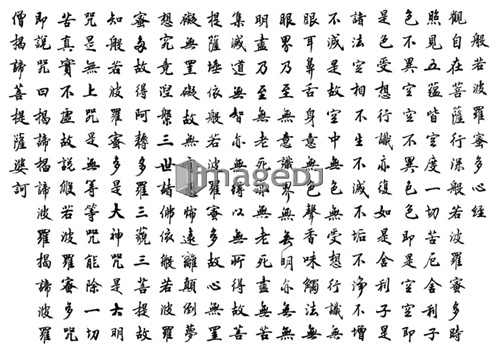 般若波羅蜜多心經
觀自在菩薩行深般若波羅蜜多時
照見五蘊皆空度一切苦厄舍利子
色不異空空不異色色即是空空即
是色受想行識亦復如是舍利子是
諸法空相不生不滅不垢不淨不增
不減是故空中無色無受想行識無
眼耳鼻舌身意無色聲香味觸法無
眼界乃至無意識界無無明亦無無
明盡乃至無老死亦無老死盡無苦
集滅道無智亦無得以無所得故菩
提薩埵依般若波羅蜜多故心無罣
礙無罣礙故無有恐怖遠離顛倒夢
想究竟涅槃三世諸佛依般若波羅
蜜多故得阿耨多羅三藐三菩提故
知般若波羅蜜多是大神咒是大明
咒是無上咒是無等等咒能除一切
苦真實不虛故說般若波羅蜜多咒
即說咒曰揭諦揭諦波羅揭諦波羅
僧揭諦菩提薩婆訶
imageDJ